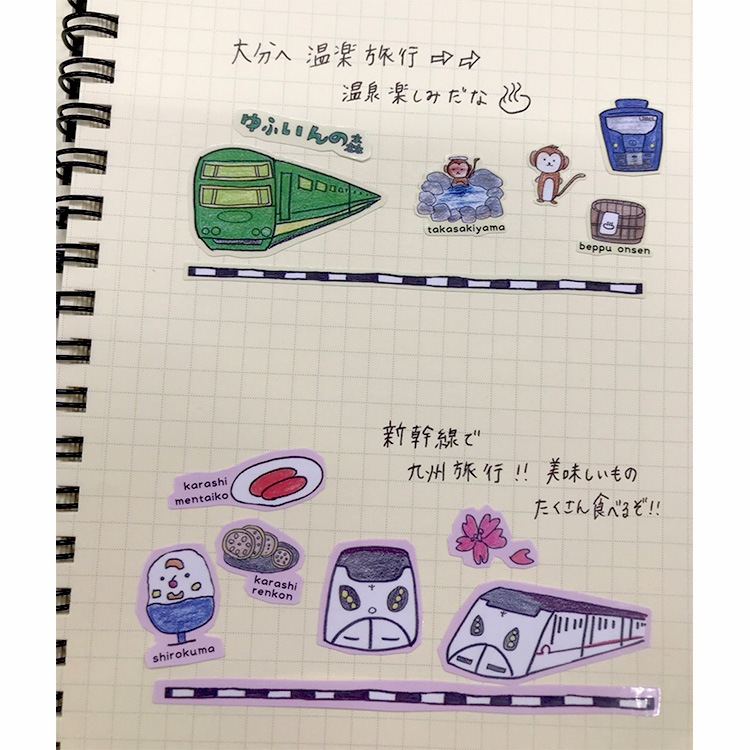 大分へ 温楽旅行 ⇨⇨
温泉楽しみだな ♨
ゆふいんの森
takasakiyama
beppu onsen
新幹線で
九州旅行!! 美味しいもの
たくさん食べるぞ!!
karashi
mentaiko
karashi
renkon
shirokuma